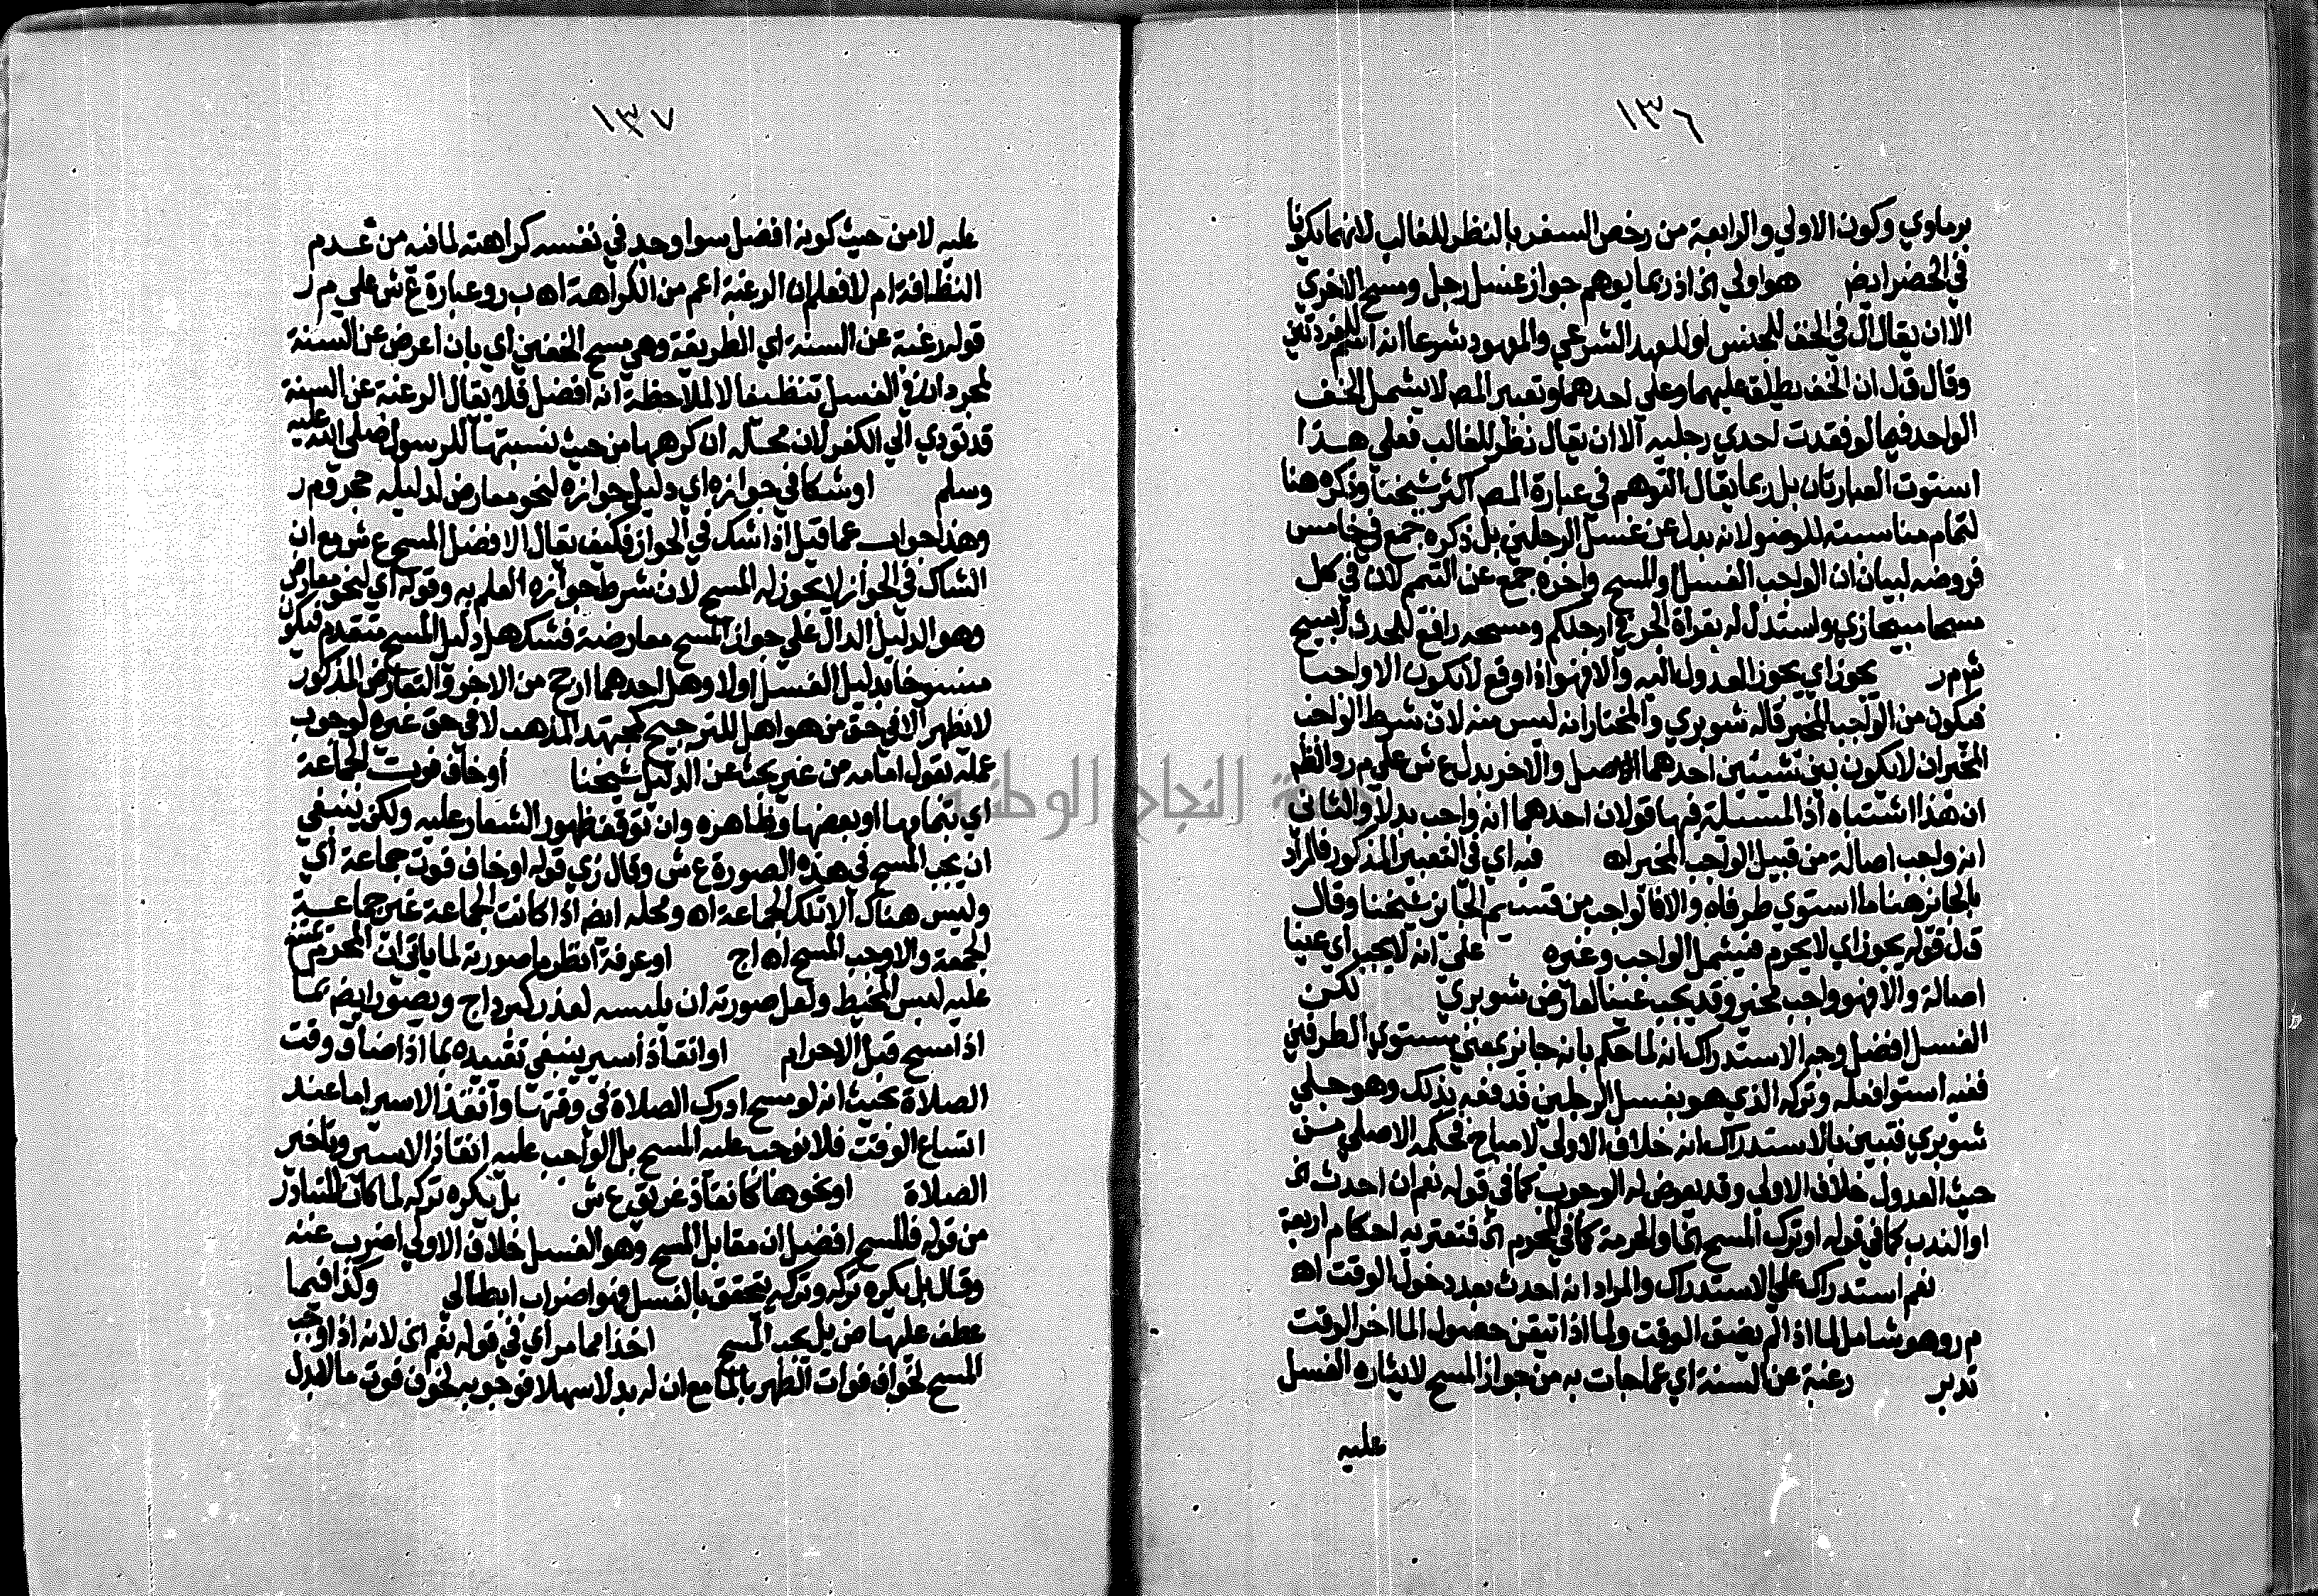 ١٣٦
برماوي وكون الاولي والرابعة من رخص السفر بالنظر للغالب لانهما يكونا
في الحضر ايض هو اولي اي اذ ربما يوهم جواز غسل رجل ومسح الاخري
الا ان يقال ال في الخف للجنس او للعهد الشرعي والمعهود شرعا انه اسم للفردتين
وقال ق ل ان الخف يطلق عليهما وعلي احدهما وتعبير المص لا يشمل الخف
الواحد فيما لو فقدت احدي رجليه الا ان يقال نظر للغالب فعلي هذا
استوت العبارتان بل ربما يقال التوهم في عبارة المص اكثر شيخنا وذكره هنا
لتمام مناسبته للوضو لانه بدل عن غسل الرجلين بل ذكره جمع في خامس
فروضه لبيان ان الواجب الغسل او المسح واخره جمع عن التيمم لان في كل
مسحا مبيحا زي واستدل له بقراة الجر في ارجلكم ومسحه رافع للحدث لا مبيح
ش م ر يجوز اي يجوز العدول اليه والا فهو اذا وقع لا يكون الا واجبا
فيكون من الواجب المخير قاله شوبري والمختار انه ليس منه لان شرط الواجب
المخير ان لا يكون بين شيئين احدهما اصل والاخر بدل ع ش علي م ر والظم
ان هذا اشتباه اذ المسيلة فيها قولان احدهما انه واجب بدلا والثاني
انه واجب اصالة من قبيل الواجب المخير اه فيه اي في التعبير المذكور فالمراد
بالجايز هنا ما استوي طرفاه والا فالواجب من قسيم الجايز شيخنا وقال
ق ل قوله يجوز اي لا يحرم فيشمل الواجب وغيره علي انه لا يجب اي عينا
اصالة والا فهو واجب مخير وقد يجب عينا لعارض شوبري لكن
الغسل افضل وجه الاستدراك انه لما حكم بانه جايز بمعني مستوي الطرفين
ففيه استوا فعله وتركه الذي هو بغسل الرجلين فدفعه بذلك وهو جلي
شوبري فتبين بالاستدراك انه خلاف الاولي لا مباح فحكمه الاصلي من
حيث العدول خلاف الاولي وقد يعرض له الوجوب كما في قوله نعم ان احدث الخ
او الندب كما في قوله او ترك المسح الخ او الحرمة كما في المحرم اي فتعتريه احكام اربعة
نعم استدراك علي الاستدراك والمراد انه احدث بعد دخول الوقت اه
م ر وهو شامل لما اذا لم يضق الوقت ولما اذا تيقن حصول الما اخر الوقت
تدبر رغبة عن السنة اي عما جات به من جواز المسح لايثاره الغسل
عليه
١٣٧
عليه لا من حيث كونه افضل سوا وجد في نفسه كراهته لما فيه من عدم
النظافة ام لا فعلم ان الرغبة اعم من الكراهة اه ب ر وعبارة ع ش علي م ر
قوله رغبة عن السنة اي الطريقة وهي مسح الخفين اي بان اعرض عن السنة
لمجرد ان في الغسل تنظيفا لا لملاحظة انه افضل فلا يقال الرغبة عن السنة
قد تودي الي الكفر لان محله ان كرهها من حيث نسبتها للرسول صلي الله عليه
وسلم او شكا في جوازه اي دليل جوازه لنحو معارض لدليله حجر و م ر
وهذا جواب عما قيل اذا شك في الجواز فكيف يقال الافضل المسح ع ش مع ان
الشاك في الجواز لا يجوز له المسح لان شرط جوازه العلم به وقوله اي لنحو معارض
وهو الدليل الدال علي جواز المسح معارضة فشك هل دليل المسح متقدم فيكون
منسوخا بدليل الغسل اولا وهل احدهما ارجح من الاخر والتعارض المذكور
لا يظهر الا في حق من هو اهل للترجيح كمجتهد المذهب لا في حق غيره لوجوب
عمله بقول امامه من غير بحث عن الدليل شيخنا أو خاف فوت الجماعة
اي بتمامها او بعضها وظاهره وان توقف ظهور الشعار عليه ولكن ينبغي
ان يجب المسح في هذه الصورة ع ش وقال زي قوله او خاف فوت جماعة أي
وليس هناك الا تلك الجماعة اه ومحله ايض اذا كانت الجماعة غير جماعة
الجمعة والا وجب المسح اه اج او عرفة انظر ما صورته لما ياتي ان المحرم يمتنع
عليه لبس المخيط ولعل صورته ان يلبسه لعذر كبرد اج ويصور ايض بما
اذا مسح قبل الاحرام او انقاذ أسير ينبغي تقييده بما اذا ضاق وقت
الصلاة بحيث انه لو مسح ادرك الصلاة في وقتها وانقذ الاسير اما عند
اتساع الوقت فلا يوجب عليه المسح بل الواجب عليه انقاذ الاسير وتاخير
الصلاة او نحوها كانقاذ غريق ع ش بل يكره تركه لما كان المتبادر
من قوله فالمسح افضل ان مقابل المسح وهو الغسل خلاف الاولي اضرب عنه
وقال بل يكره تركه وتركه يتحقق بالغسل فهو اضراب ابطالي وكذا فيما
عطف عليها ض بل يجب المسح اخذا مما مر أي في قوله نعم اي لانه اذا وجب
المسح لخوف فوات الطهر بالما مع ان له بدلا سهلا فوجوبه لخوف فوت ما البدل